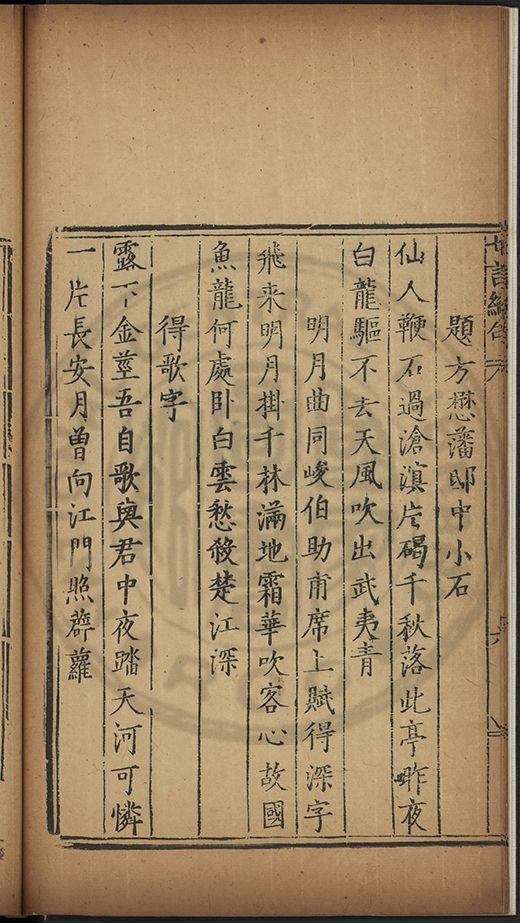 題方懋藩邸中小石
仙人鞭石過滄溟片碣千秋落此亭昨夜
白龍驅不去天風吹出武夷青
明月曲同峻伯助甫席上賦得深字
飛来明月掛千林滿地霜華吹客心故國
魚龍何處卧白雲愁殺楚江深
得歌字
露下金莖吾自歌與君中夜踏天河可憐
一片長安月曾向江門照薜蘿